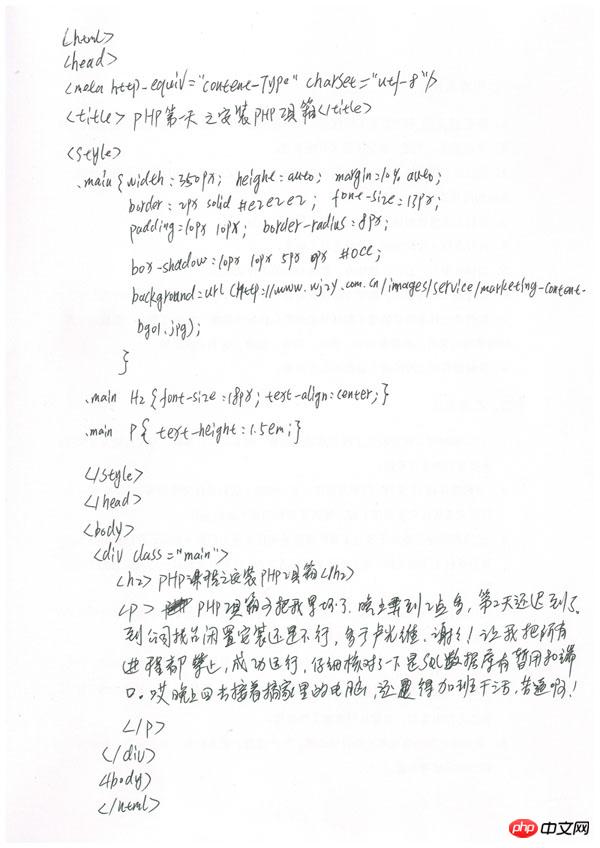 <html>
<head>
<meta http-equiv="content-Type" charset="utf-8"/>
<title>PHP第一天之安装PHP工具箱</title>
<style>
.main{width:350px; height:auto; margin:10% auto;
border:2px solid #e2e2e2; font-size:13px;
padding:10px 10px; border-radius:8px;
box-shadow:10px 10px 5px 0px #0cc;
background:url(http://www.wjzy.com.cn/images/service/marketing-content-
bg01.jpg);
}
.main H2{font-size:18px; text-align:center;}
.main P{text-height:1.5em;}
</style>
</head>
<body>
<div class="main">
<h2>PHP课程之安装PHP工具箱</h2>
<p> PHP工具箱可把我累坏了.晚上弄到2点多,第2天还迟到了.
到公司找台闲置安装还是不行,多亏卢光维.谢谢!让我把所有
进程都禁止,成功运行,仔细核对一下是SQL数据库有暂用和端
口。哎晚上回去接着搞家里的电脑,还得加班干活,苦逼啊!
</p>
</div>
<body>
</html>
php 中文网